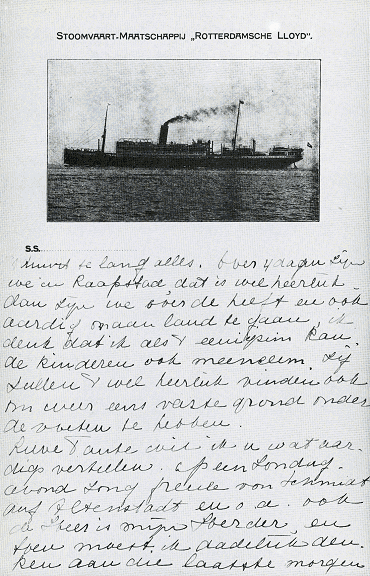 STOOMVAART-MAATSCHAPPIJ „ROTTERDAMSCHE LLOYD".
S.S.
te lang alles. Over 4 dagen zijn
we in Kaapstad, dat is wel heerlijk.
dan zijn we over de helft en ook
aardig om aan land te gaan, ik
denk dat ik als 't eenigszins kan
de kinderen ook meeneem. Zij
zullen 't wel heerlijk vinden ook
om weer eens vaste grond onder
de voeten te hebben.
Lieve Tante wil ik u wat aar-
digs vertellen. Op een Zondag-
avond zong freule von Schmidt
auf Altenstadt en o.a. ook
de Heer is mijn Herder, en
toen moest ik dadelijk den-
ken aan die laatste morgen